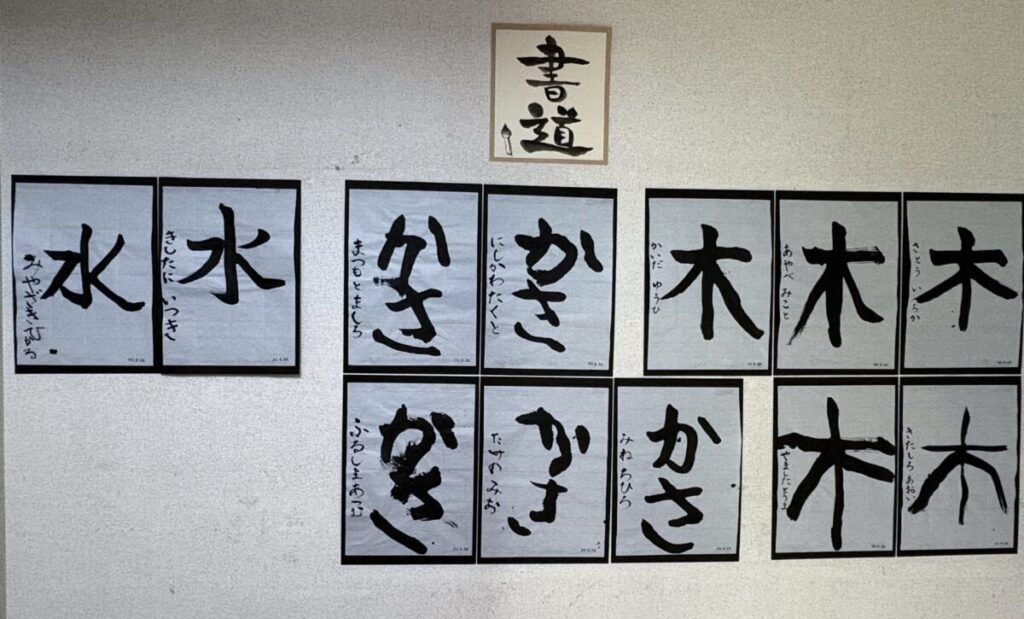 書道
木
さとう いちか
木
あやべ みこと
木
かいだ ゆうひ
かさ
にしかわたくと
かさ
まつもとましろ
水
きしたに いつき
水
みやざき
木
きたしろ あおい
木
やました
かさ
みね ちひろ
かさ
たけのみお
かさ